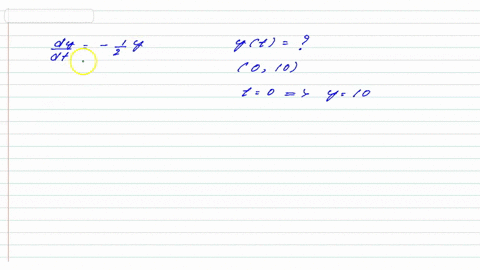 dy/dt = - 1/2 y
y(t) = ?
(0, 10)
t=0 => y=10